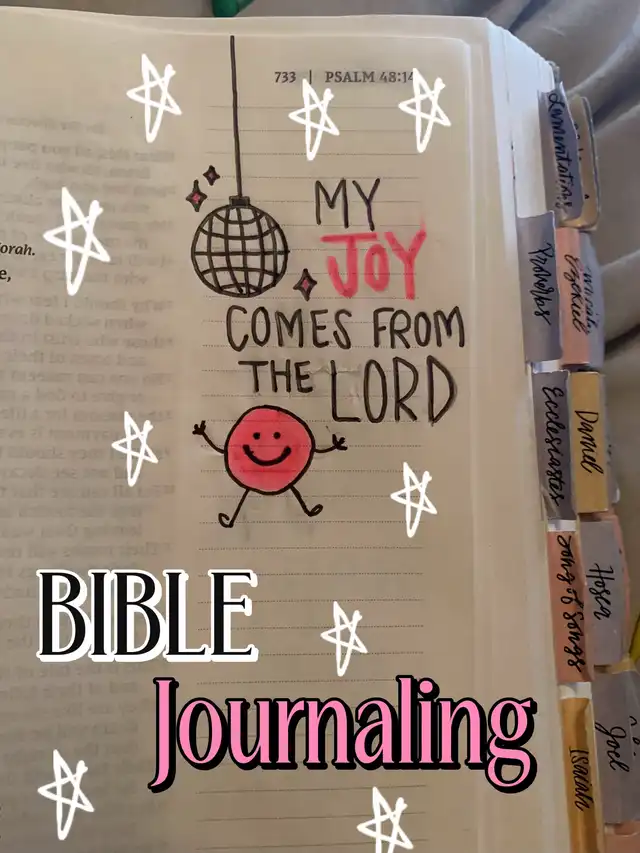 733 | PSALM 48:14
orah.
e,
MY
JOY
COMES FROM
THE LORD
BIBLE
Journaling
Lamentations
Proverbs
Ezekiel
Ecclesiastes
Daniel
Song of Songs
Hosea
Isaiah
Joel